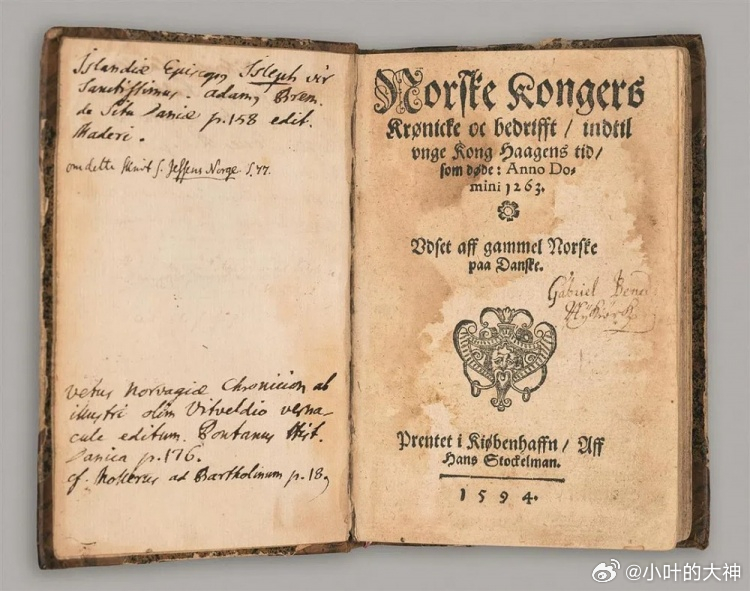 Islandiæ Episcop9 Isleph vir
Sanctissimus. adam9 Brem.
de Situ Daniæ p.158 edit.
Maderi.
om dette skrivt s. Jessens Norge S. 77.
vetus Norvagiæ Chronicion ab
illustri olim Vitveldio verna-
cule editum. Pontanus Hist.
Danica p.176.
cf. Mollerus ad Bartholinum p.18
Norske Kongers
Krønicke oc bedrifft / indtil
vnge Kong Haagens tid /
som døde: Anno Do-
mini 1263.
Vdset aff gammel Norske
paa Danske.
Gabriel
Prentet i Kiøbenhaffn / Aff
Hans Stockelman.
1594.
@小叶的大神